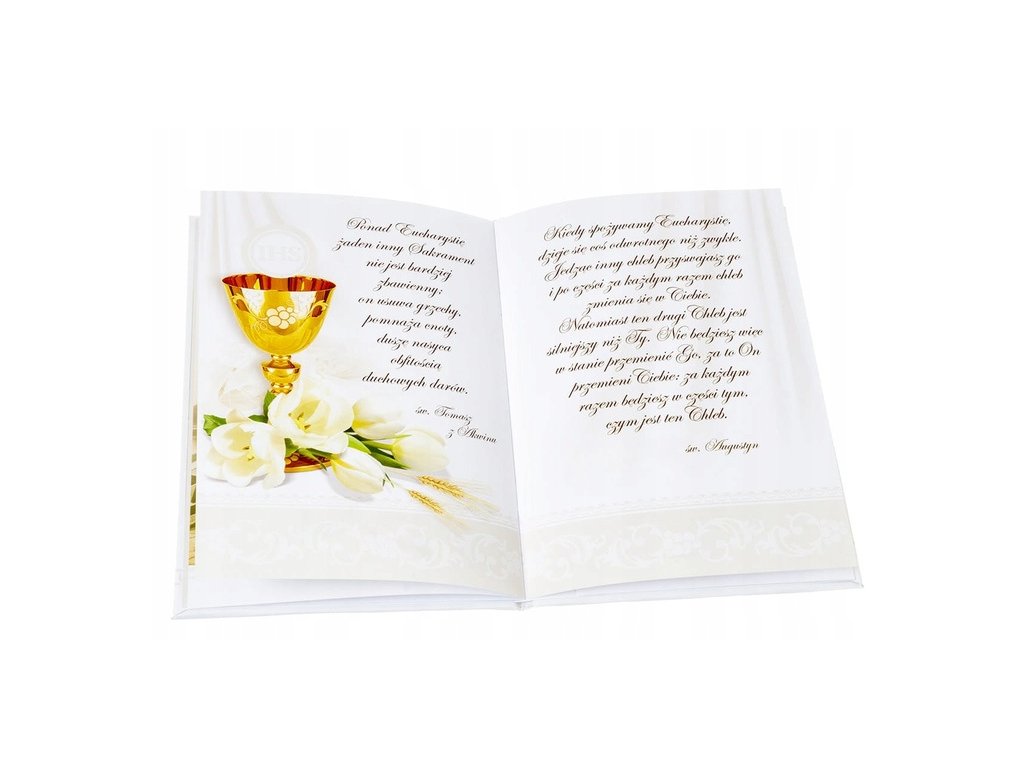 IHS
Ponad Eucharystię
żaden inny Sakrament
nie jest bardziej
zbawienny;
on usuwa grzechy,
pomnaża cnoty,
duszę nasyca
obfitością
duchowych darów.
św. Tomasz
z Akwinu
Kiedy spożywamy Eucharystię,
dzieje się coś odwrotnego niż zwykle.
Jedząc inny chleb przyswajasz go
i po części za każdym razem chleb
zmienia się w Ciebie.
Natomiast ten drugi Chleb jest
silniejszy niż Ty. Nie będziesz więc
w stanie przemienić Go, za to On
przemieni Ciebie; za każdym
razem będziesz w części tym,
czym jest ten Chleb.
św. Augustyn